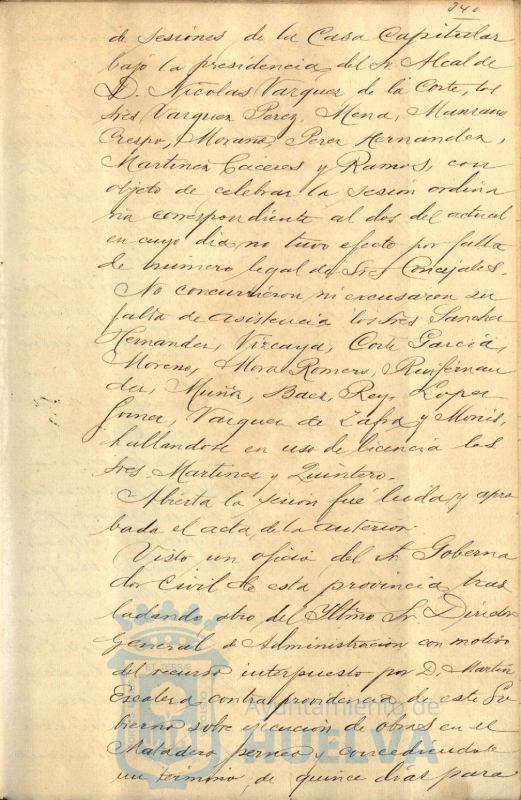 240
de sesiones de la Casa Capitular
bajo la presidencia del Sr. Alcalde
D. Nicolas Vazquez de la Corte, los
Sres Vazquez Perez, Mena, Manzano
Crespo, Morano, Perez Hernandez,
Martinez Caceres y Ramos, con
objeto de celebrar la sesión ordina
ria correspondiente al dos del actual
en cuyo dia no tuvo efecto por falta
de número legal de Sres Concejales.
No concurrieron ni excusaron su
falta de asistencia los Sres Sanchez
Hernandez, Vizcaya, Corte Garcia,
Moreno, Mora Romero, Ruifernan
dez, Muñiz, Baez, Rey, Lopez
Gomez, Vazquez de Zafra y Monis,
hallandose en uso de licencia los
Sres. Martinez y Quintero.
Abierta la sesión fué leida y apro
bada el acta de la anterior.
Visto un oficio del Sr. Goberna
dor Civil de esta provincia tras
ladando otro del Yltmo Sr. Director
General de Administracion con motivo
del recurso interpuesto por D. Martin
Escalera contra providencia de este Go
bierno sobre ejecucion de obras en el
Matadero y concediendole
un termino de quince días para
Ayuntamiento de
HUELVA